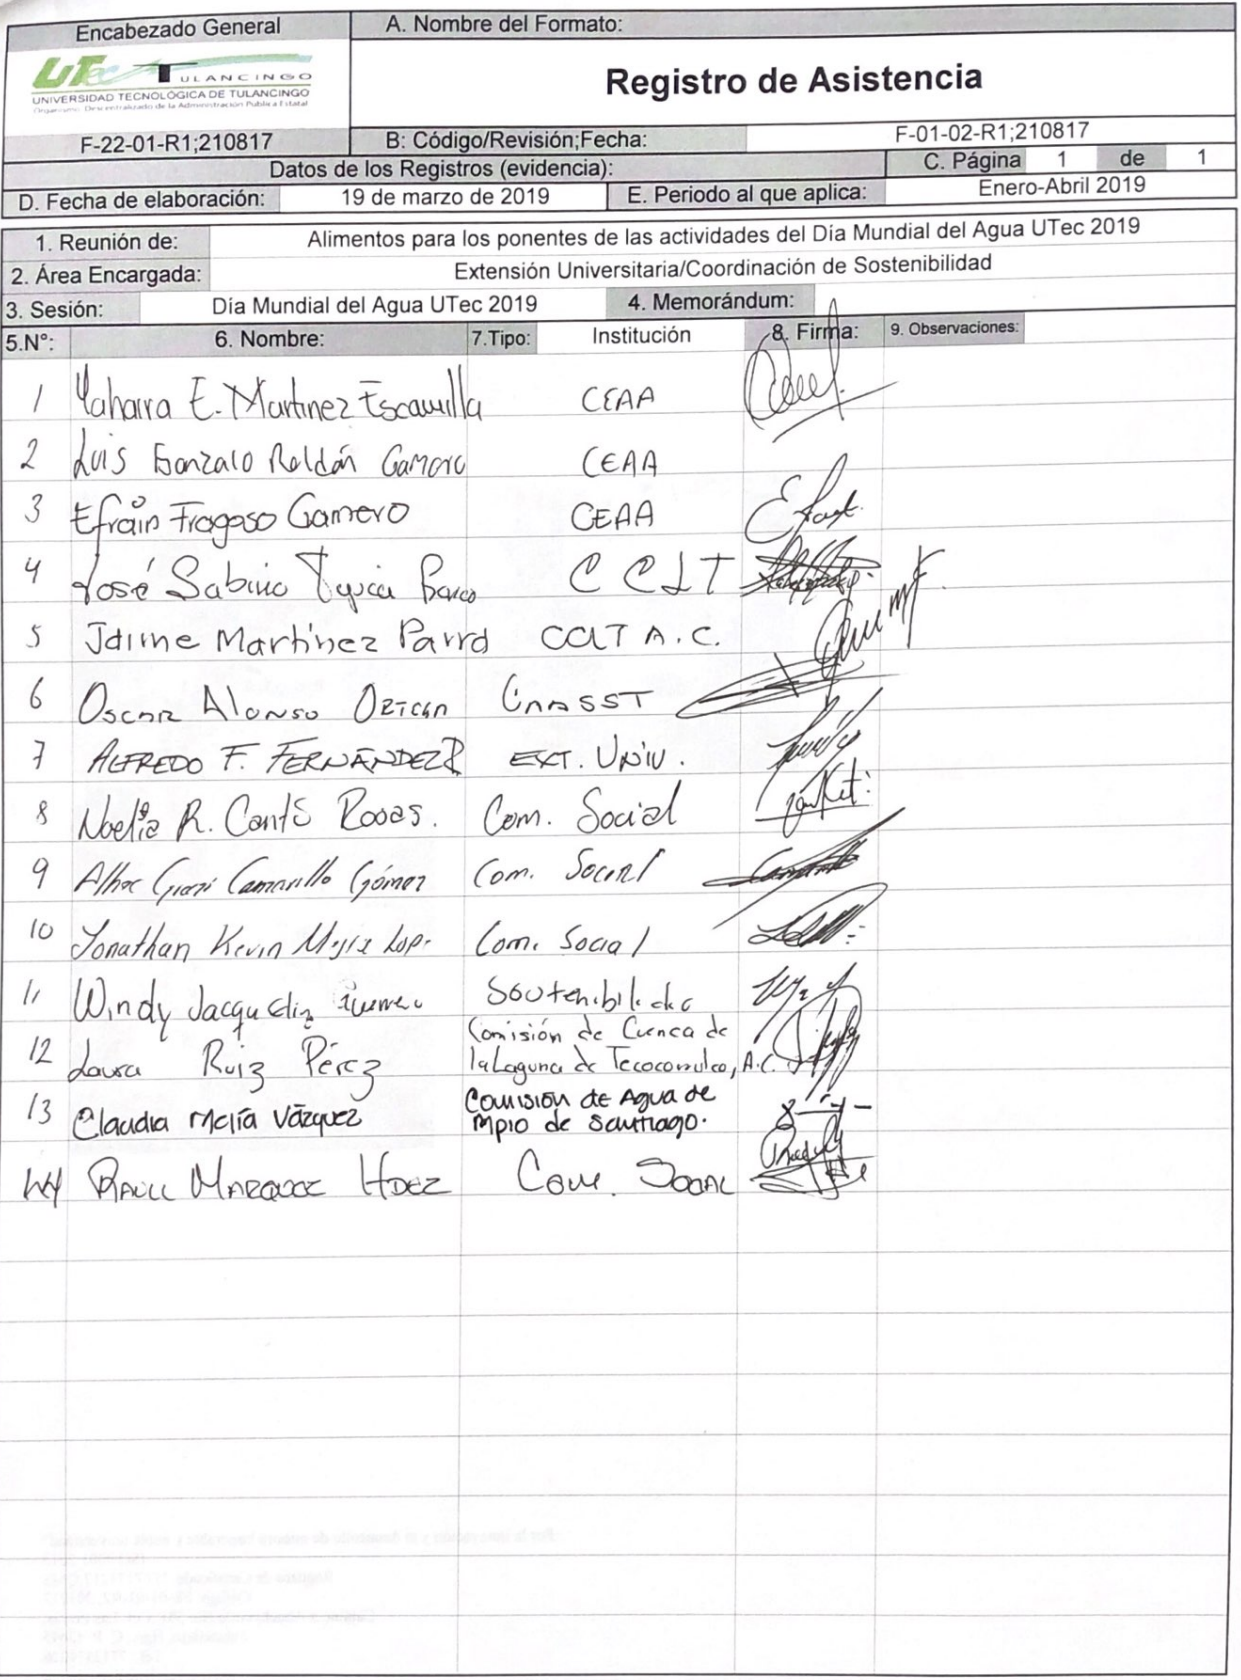 Encabezado General
A. Nombre del Formato:
UTec TULANCINGO
UNIVERSIDAD TECNOLÓGICA DE TULANCINGO
Organismo Descentralizado de la Administración Pública Estatal
Registro de Asistencia
F-22-01-R1;210817
B: Código/Revisión;Fecha:
F-01-02-R1;210817
Datos de los Registros (evidencia):
C. Página 1 de 1
D. Fecha de elaboración: 19 de marzo de 2019
E. Periodo al que aplica: Enero-Abril 2019
1. Reunión de: Alimentos para los ponentes de las actividades del Día Mundial del Agua UTec 2019
2. Área Encargada: Extensión Universitaria/Coordinación de Sostenibilidad
3. Sesión: Día Mundial del Agua UTec 2019 4. Memorándum:
5.N°: 6. Nombre: 7.Tipo: Institución 8. Firma: 9. Observaciones:
1 E. Martinez Escamilla CEAA
2 Luis Gonzalo Roldán CEAA
3 Efraín Fragoso Gamero CEAA
4 José Sabino CCLT
5 Jaime Martínez Parra CCLT A.C.
6 Oscar Alonso
7 ALFREDO F. FERNÁNDEZ EXT. UNIV.
8 Noelia R. Cantú Rosas. Com. Social
9 Camarillo Gómez Com. Social
10 Jonathan Kevin Com. Social
11 Windy
12 Laura Ruiz Pérez Comisión de Cuenca de
la Laguna de Tecocomulco, A.C.
13 Claudia Mejía Vázquez Comisión de Agua de
Mpio de Santiago.
14 RAÚL MARQUEZ HDEZ Com. SOCIAL